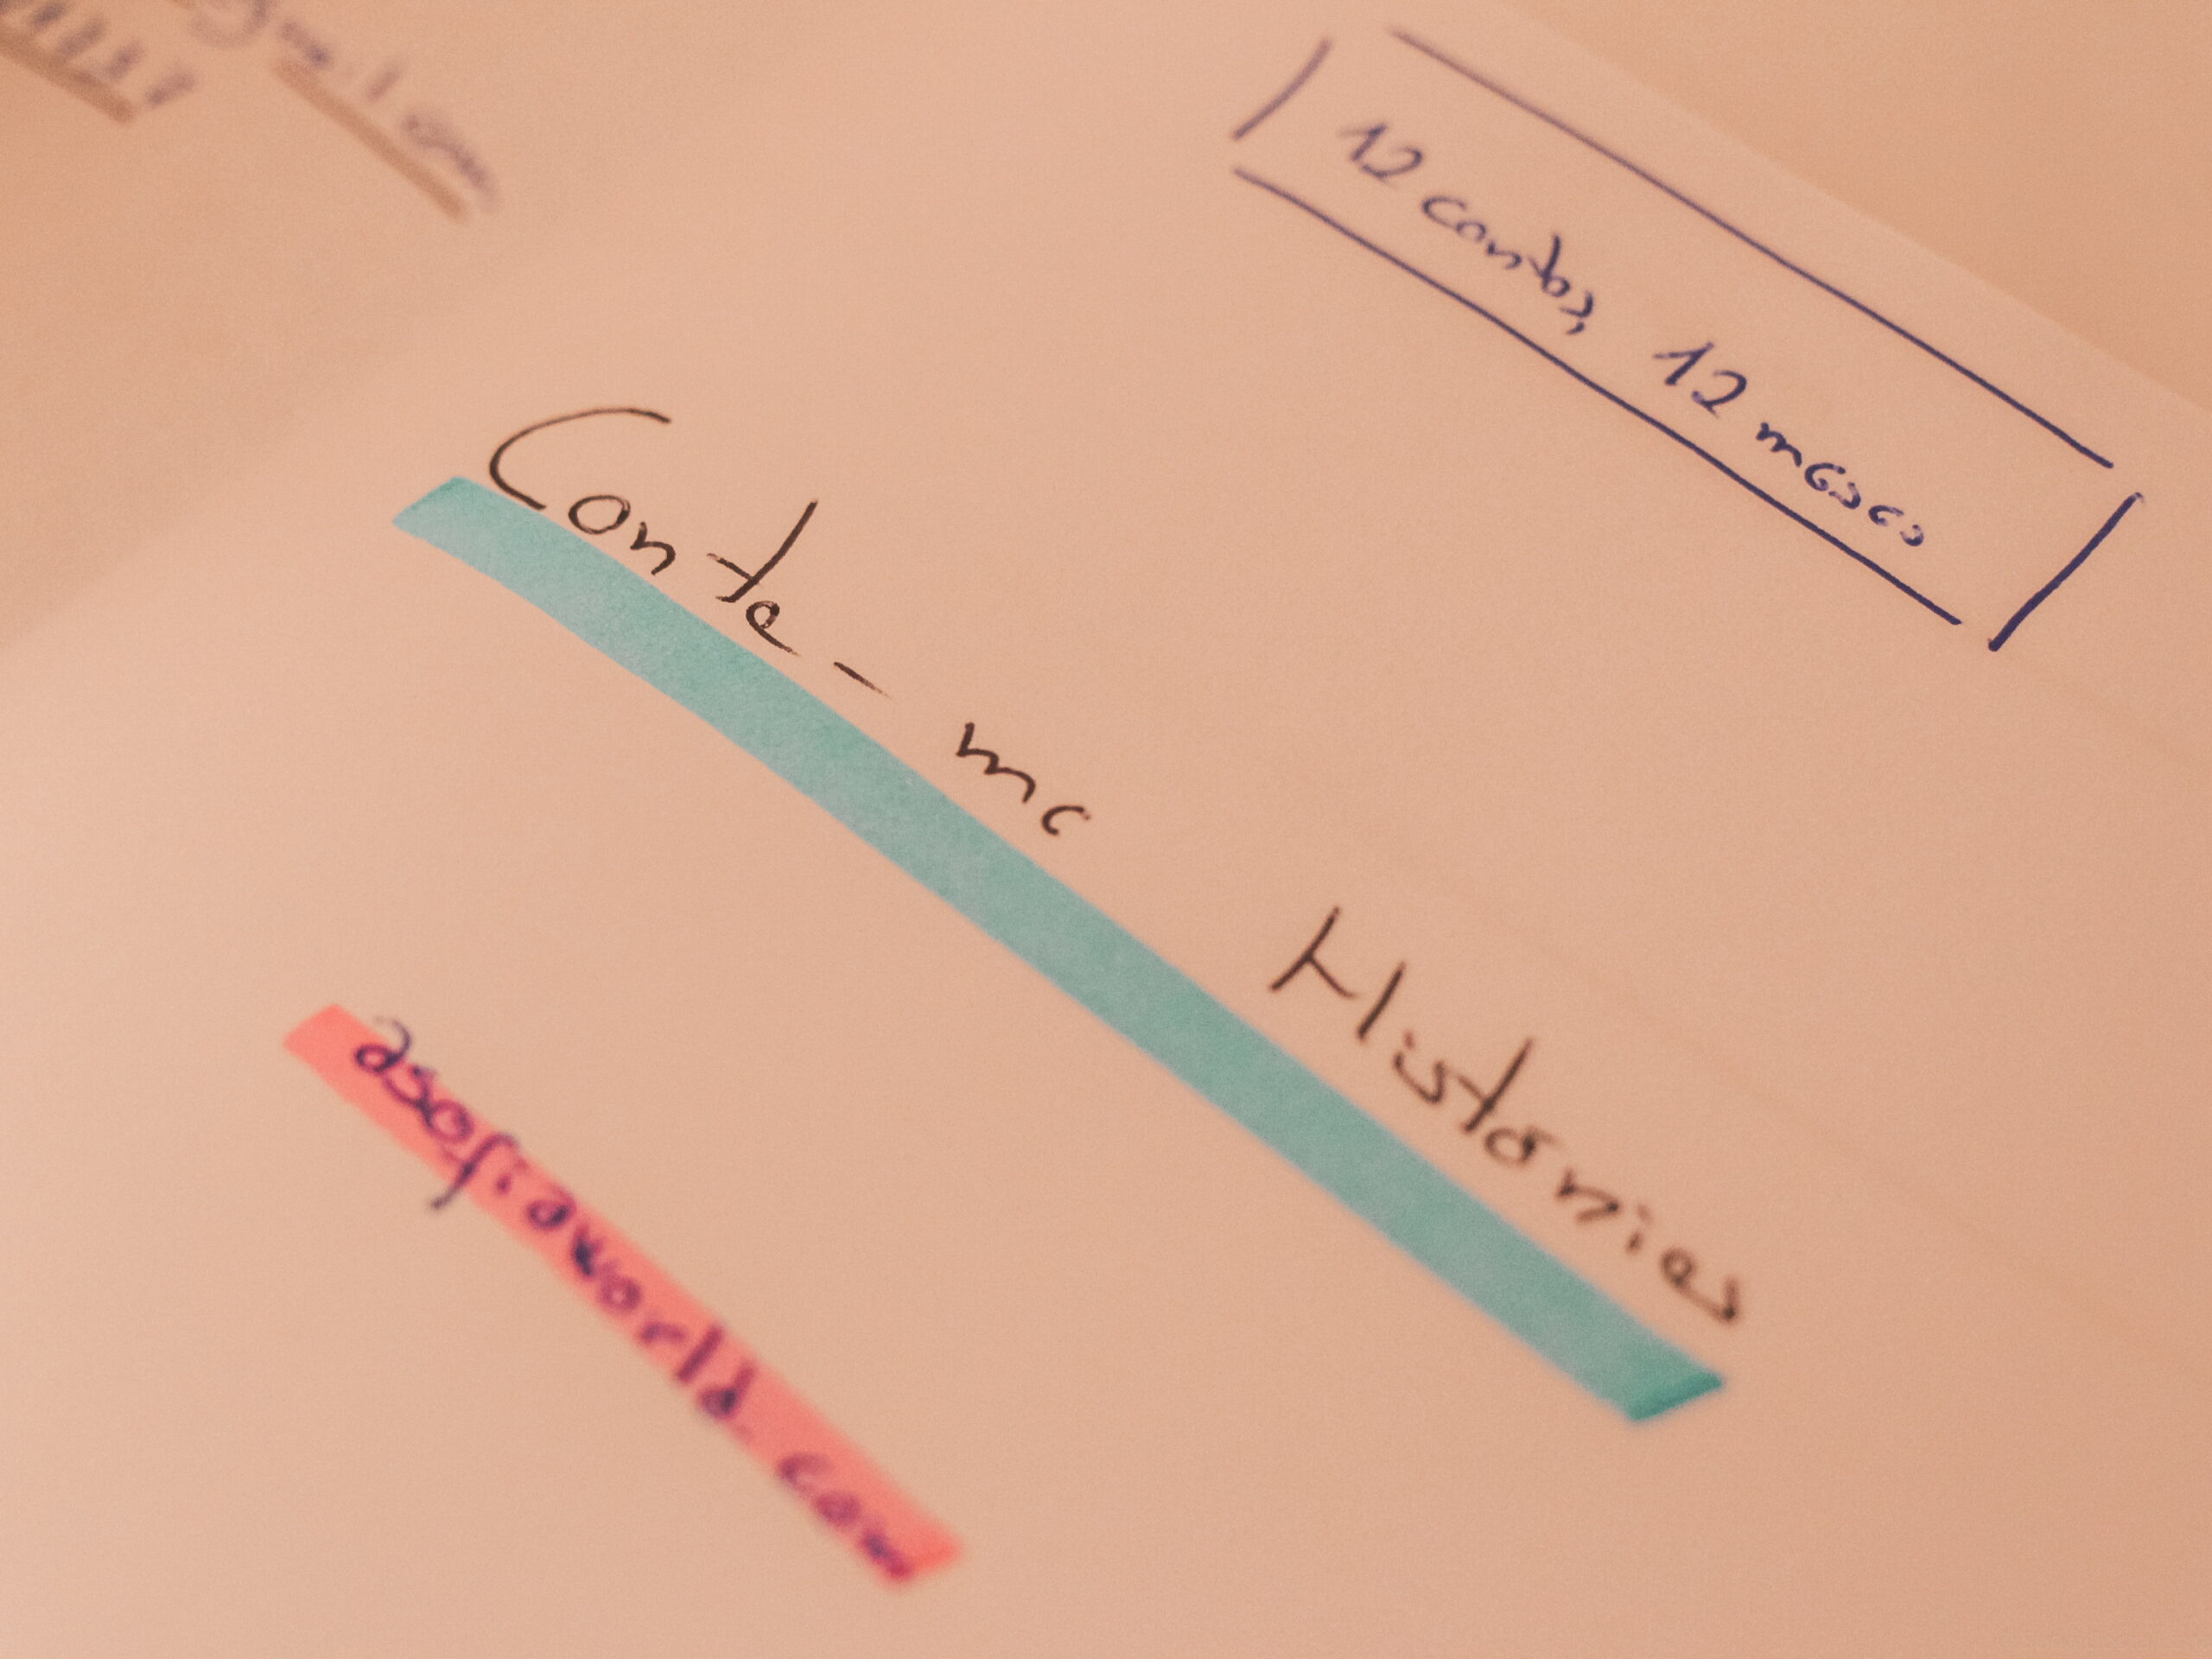 12 contos, 12 meses
Conte-me Histórias
asofiaworld.com